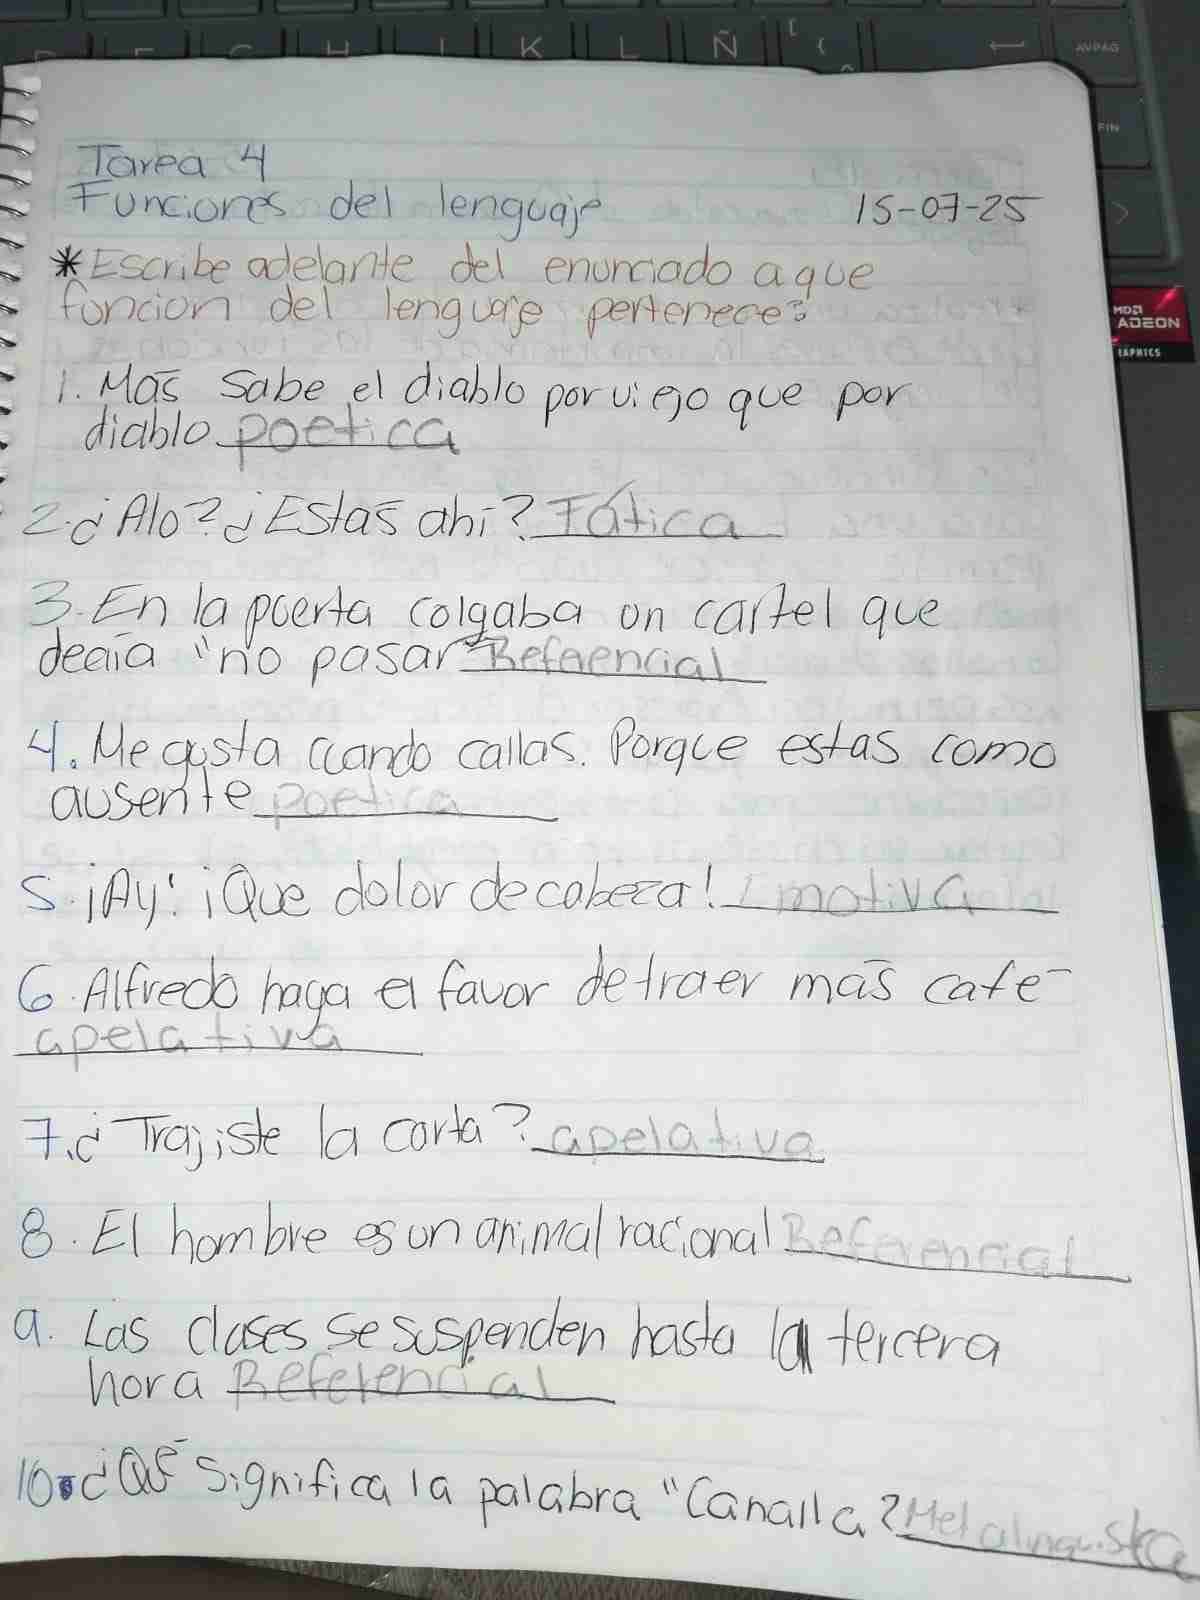 K L Ñ
AVPAG
FIN
Tarea 4
Funciones del lenguaje 15-07-25
*Escribe adelante del enunciado a que
funcion del lenguaje pertenece:
AMD
RADEON
GRAPHICS
1. Más sabe el diablo por viejo que por
diablo poetica
2. ¿Alo? ¿Estás ahí? Fática
3. En la puerta colgaba un cartel que
decía "no pasar" Refaencial
4. Me gusta cuando callas. Porque estas como
ausente poetica
5. ¡Ay! ¡Que dolor de cabeza! Emotiva
6. Alfredo haga el favor de traer más café
apelativa
7. ¿Trajiste la carta? apelativa
8. El hombre es un animal racional Referencial
9. Las clases se suspenden hasta la tercera
hora Referencial
10. ¿Qué significa la palabra "Canalla? Metalinguistica